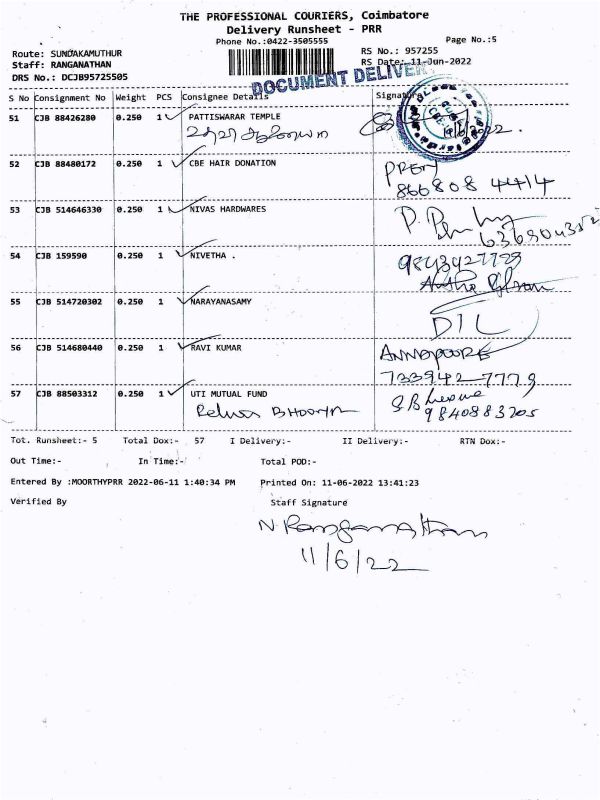 THE PROFESSIONAL COURIERS, Coimbatore
Delivery Runsheet - PRR
Phone No.:0422-3505555
Page No.:5
Route: SUNDAKAMUTHUR
RS No.: 957255
Staff: RANGANATHAN
RS Date: 11-Jun-2022
DRS No.: DCJB95725505
DOCUMENT DELIVER
S No Consignment No Weight PCS Consignee Details Signature
51 CJB 88426280 0.250 1 PATTISWARAR TEMPLE
52 CJB 88480172 0.250 1 CBE HAIR DONATION
866808 4414
53 CJB 514646330 0.250 1 NIVAS HARDWARES
54 CJB 159590 0.250 1 NIVETHA .
55 CJB 514720302 0.250 1 NARAYANASAMY
56 CJB 514680440 0.250 1 RAVI KUMAR
733942 7779
57 CJB 88503312 0.250 1 UTI MUTUAL FUND
9840883205
Tot. Runsheet:- 5 Total Dox:- 57 I Delivery:- II Delivery:- RTN Dox:-
Out Time:- In Time:- Total POD:-
Entered By :MOORTHYPRR 2022-06-11 1:40:34 PM Printed On: 11-06-2022 13:41:23
Verified By Staff Signature
N Ranganathan
11/6/22